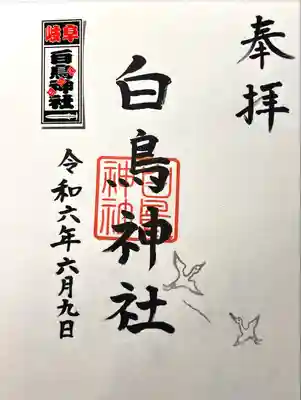 奉拝
白鳥神社
令和六年六月九日
岐阜
白鳥神社